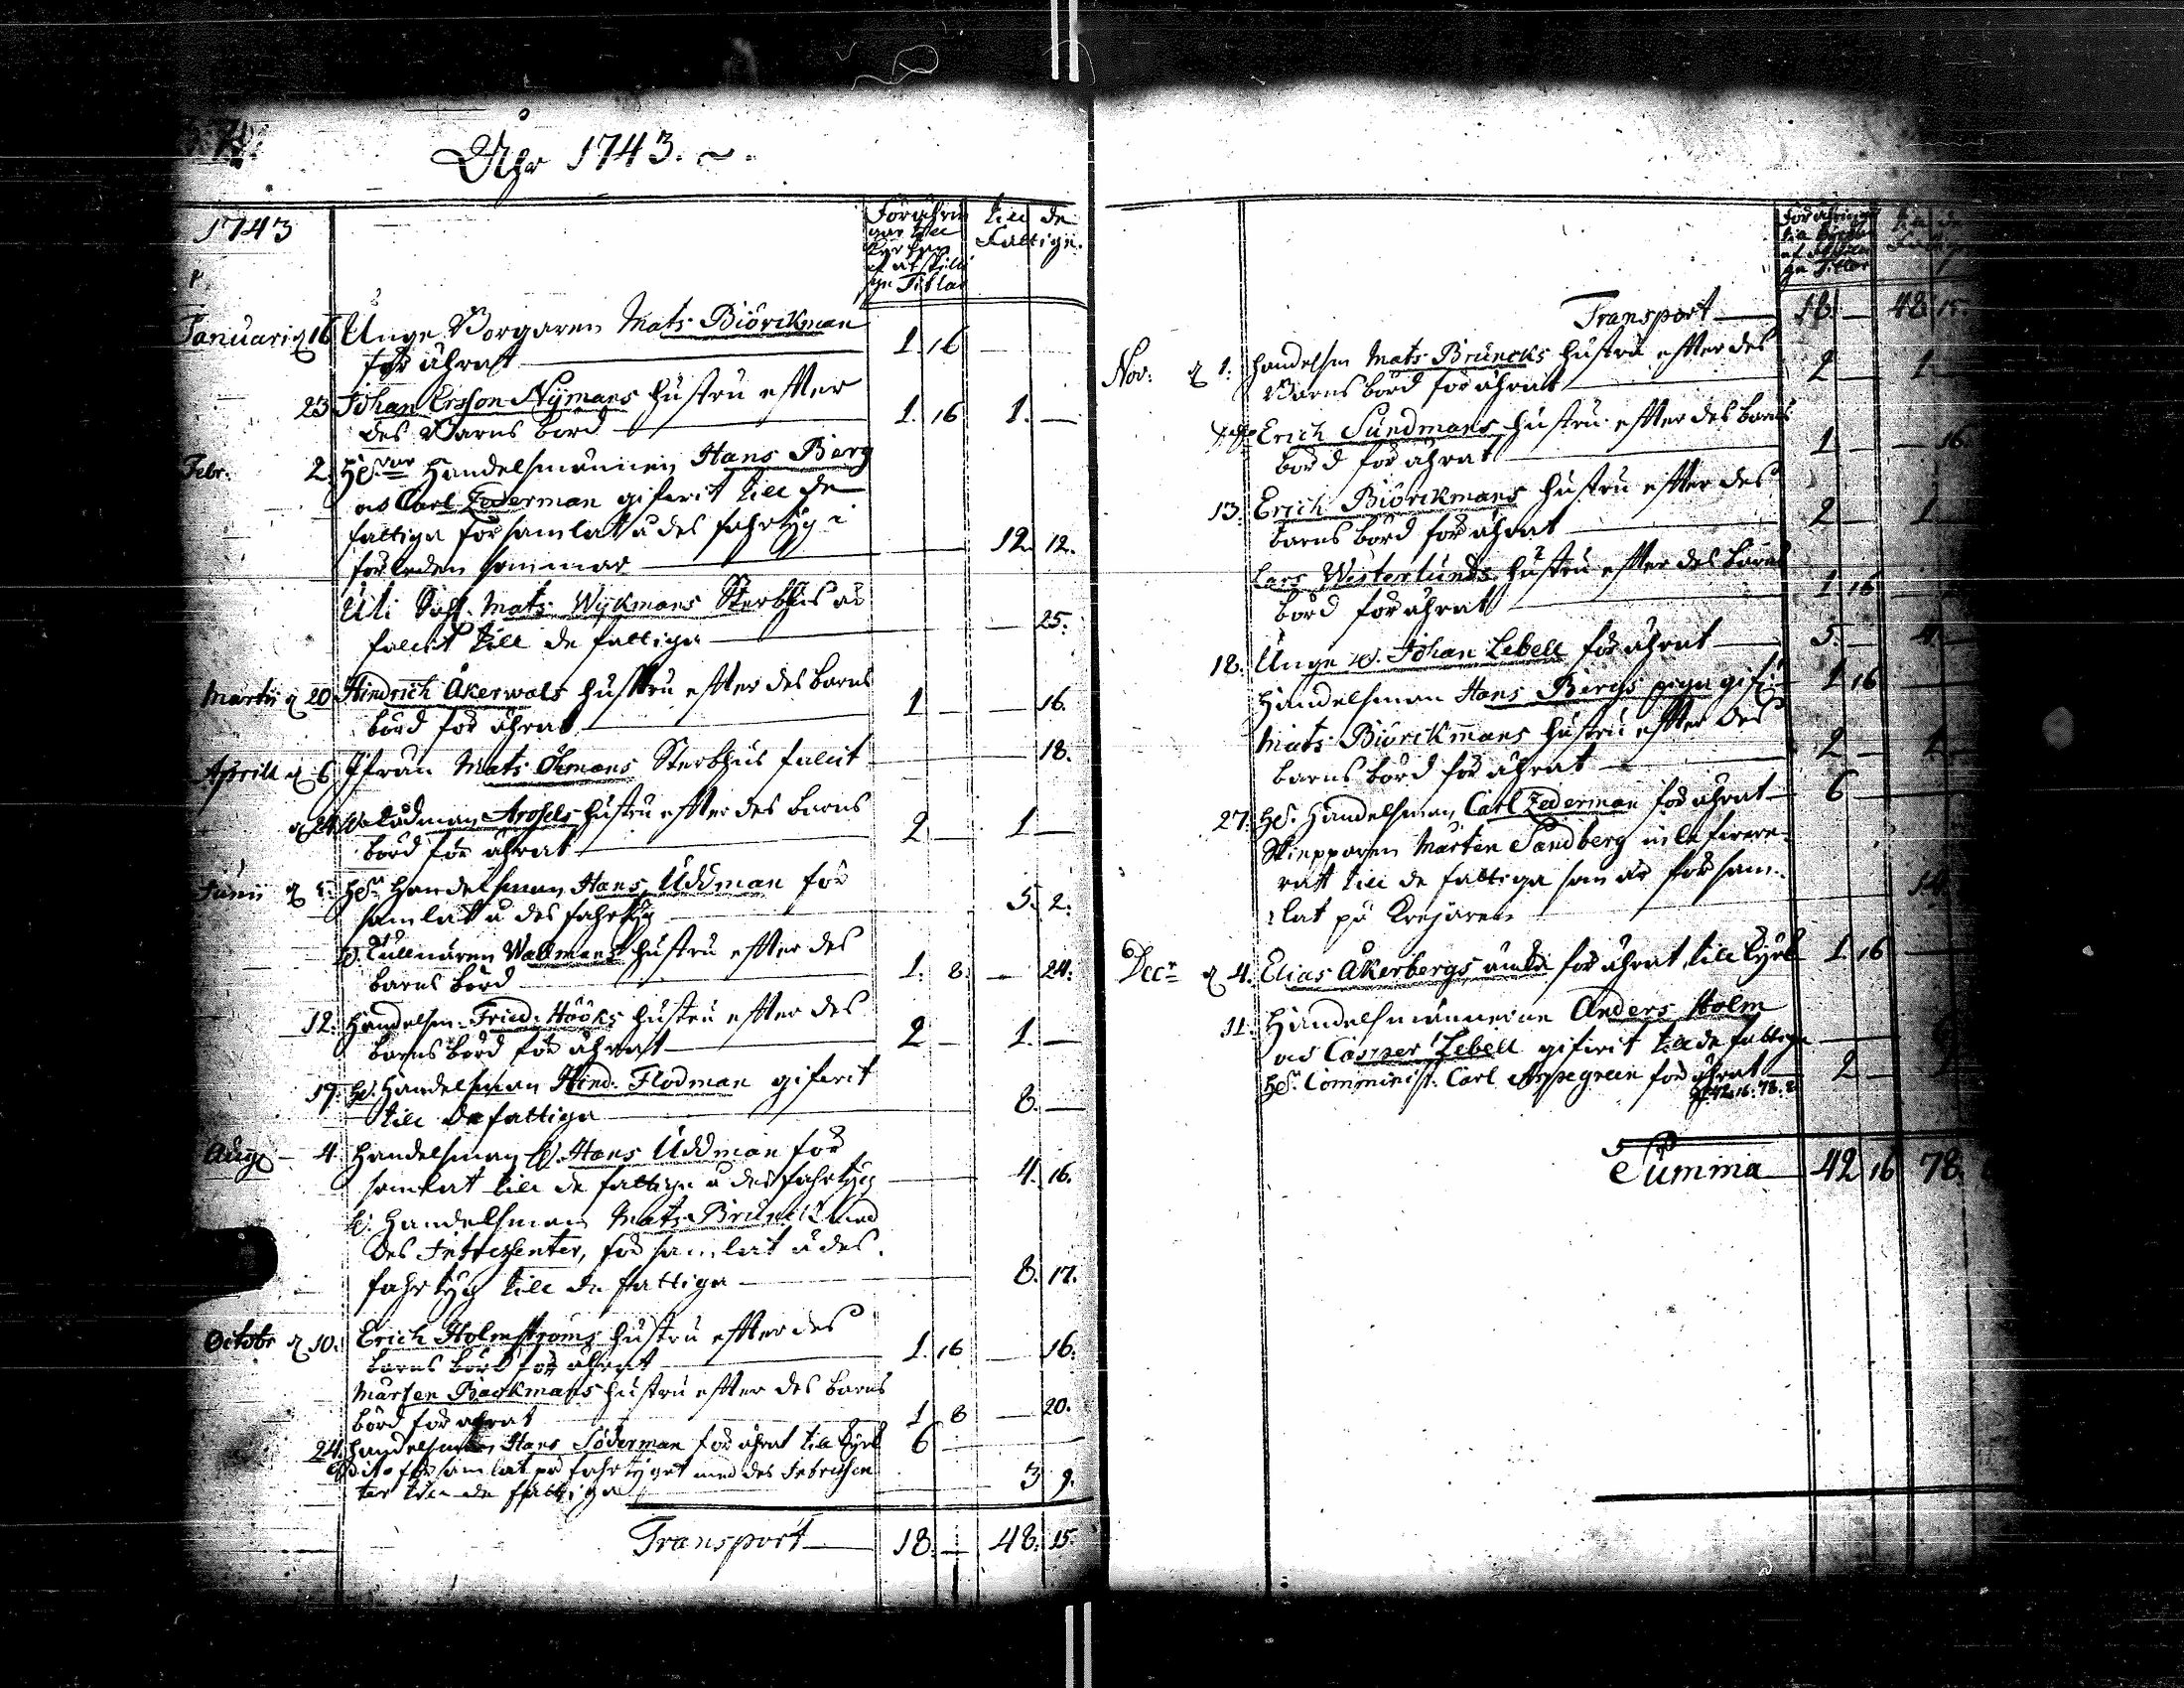 Åhr 1743.
1743
Förährin
gar till
Kyrkan
af åtskilli
ge Titlar
till de
Fattige.
Januarij d 16 Unge Borgaren Mats Biörckman
förährat 1. 16
23 Johan Ersson Nymans hustru effter
des Barns börd 1. 16 1. —
Febr. 2. Hrar Handelsmännen Hans Berg
och Carl Zederman gifwit till de
fattiga församlat å des fahrtyg i
förleden sommar 12. 12.
Uti Sahl. Mats Wijkmans Sterbhus är
fallit till de fattiga — 25.
Martii d 20 Hindrich Åkerwals hustru effter des barns
börd förährat 1 — — 16.
Aprill d 6 Ifrån Mats Öhmans Sterbhus fallit 18.
d 24 Arosels hustru effter des barns
börd förährat 2 — 1 —
Junii d Hr Handelsman Hans Uddman för
samlat å des fahrtyg 5. 2.
Tullnären Wallmans hustru effter des
barns börd 1. 8. — 24.
12. Handelsm. Fried. Hööks hustru effter des
barns börd förährat 2 — 1. —
17. Hr. Handelsman Hind. Flodman gifwit
till de fattiga 8. —
Aug. — 4 Handelsman Hr. Hans Uddman för
samlat till de fattige å des fahrtyg 4. 16.
Hr. Handelsman Mats Brunck med
des Intressenter, församlat å des
fahrtyg till de fattiga 8. 17.
Octobr d 10. Erich Holmströms hustru effter des
barns börd förährat 1. 16 — 16.
Mårten Backmans hustru effter des barns
börd förährat 1 8 — 20.
24. Handelsman Hans Söderman förährat till Kyrk 6 —
Dito församlat på fahrtyget med des Intressen
ter till de fattiga 3 9.
Transport 18. — 48. 15.
Förähringar
till Kyrkan
af åtskilli
ge Titlar
till de
Transport 18. — 48 15.
Nov. d 1. Handelsm Mats Bruncks hustru effter des
Barns börd förährat 2 — 1. —
Erich Sundmans hustru effter des barns
börd förährat 1. — — 16.
13. Erich Biörckmans hustru effter des
barns börd förährat 2 — 1
Lars Westerlunds hustru effter des barns
börd förährat 1 16
18. Unge Hr. Johan Lebell förährat 5. — 4. —
Handelsman Hans Bergs piga gif. 1 16
Mats Biörckmans hustru effter des
barns börd förährat 2 —
27. Hr. Handelsman Carl Zederman förährat 6
Skepparen Mårten Sandberg
rat till de fattiga som är försam-
lat på Krejaren
Decr d 4. Elias Åkerbergs förährat till Kyrk 1. 16
11. Handelsmännerne Anders Holm
och Casper Lebell gifwit till de fattiga
Hr Comminist. Carl Aspegreen förährat 2 —
42. 16. 78. 2
Summa 42 16 78.